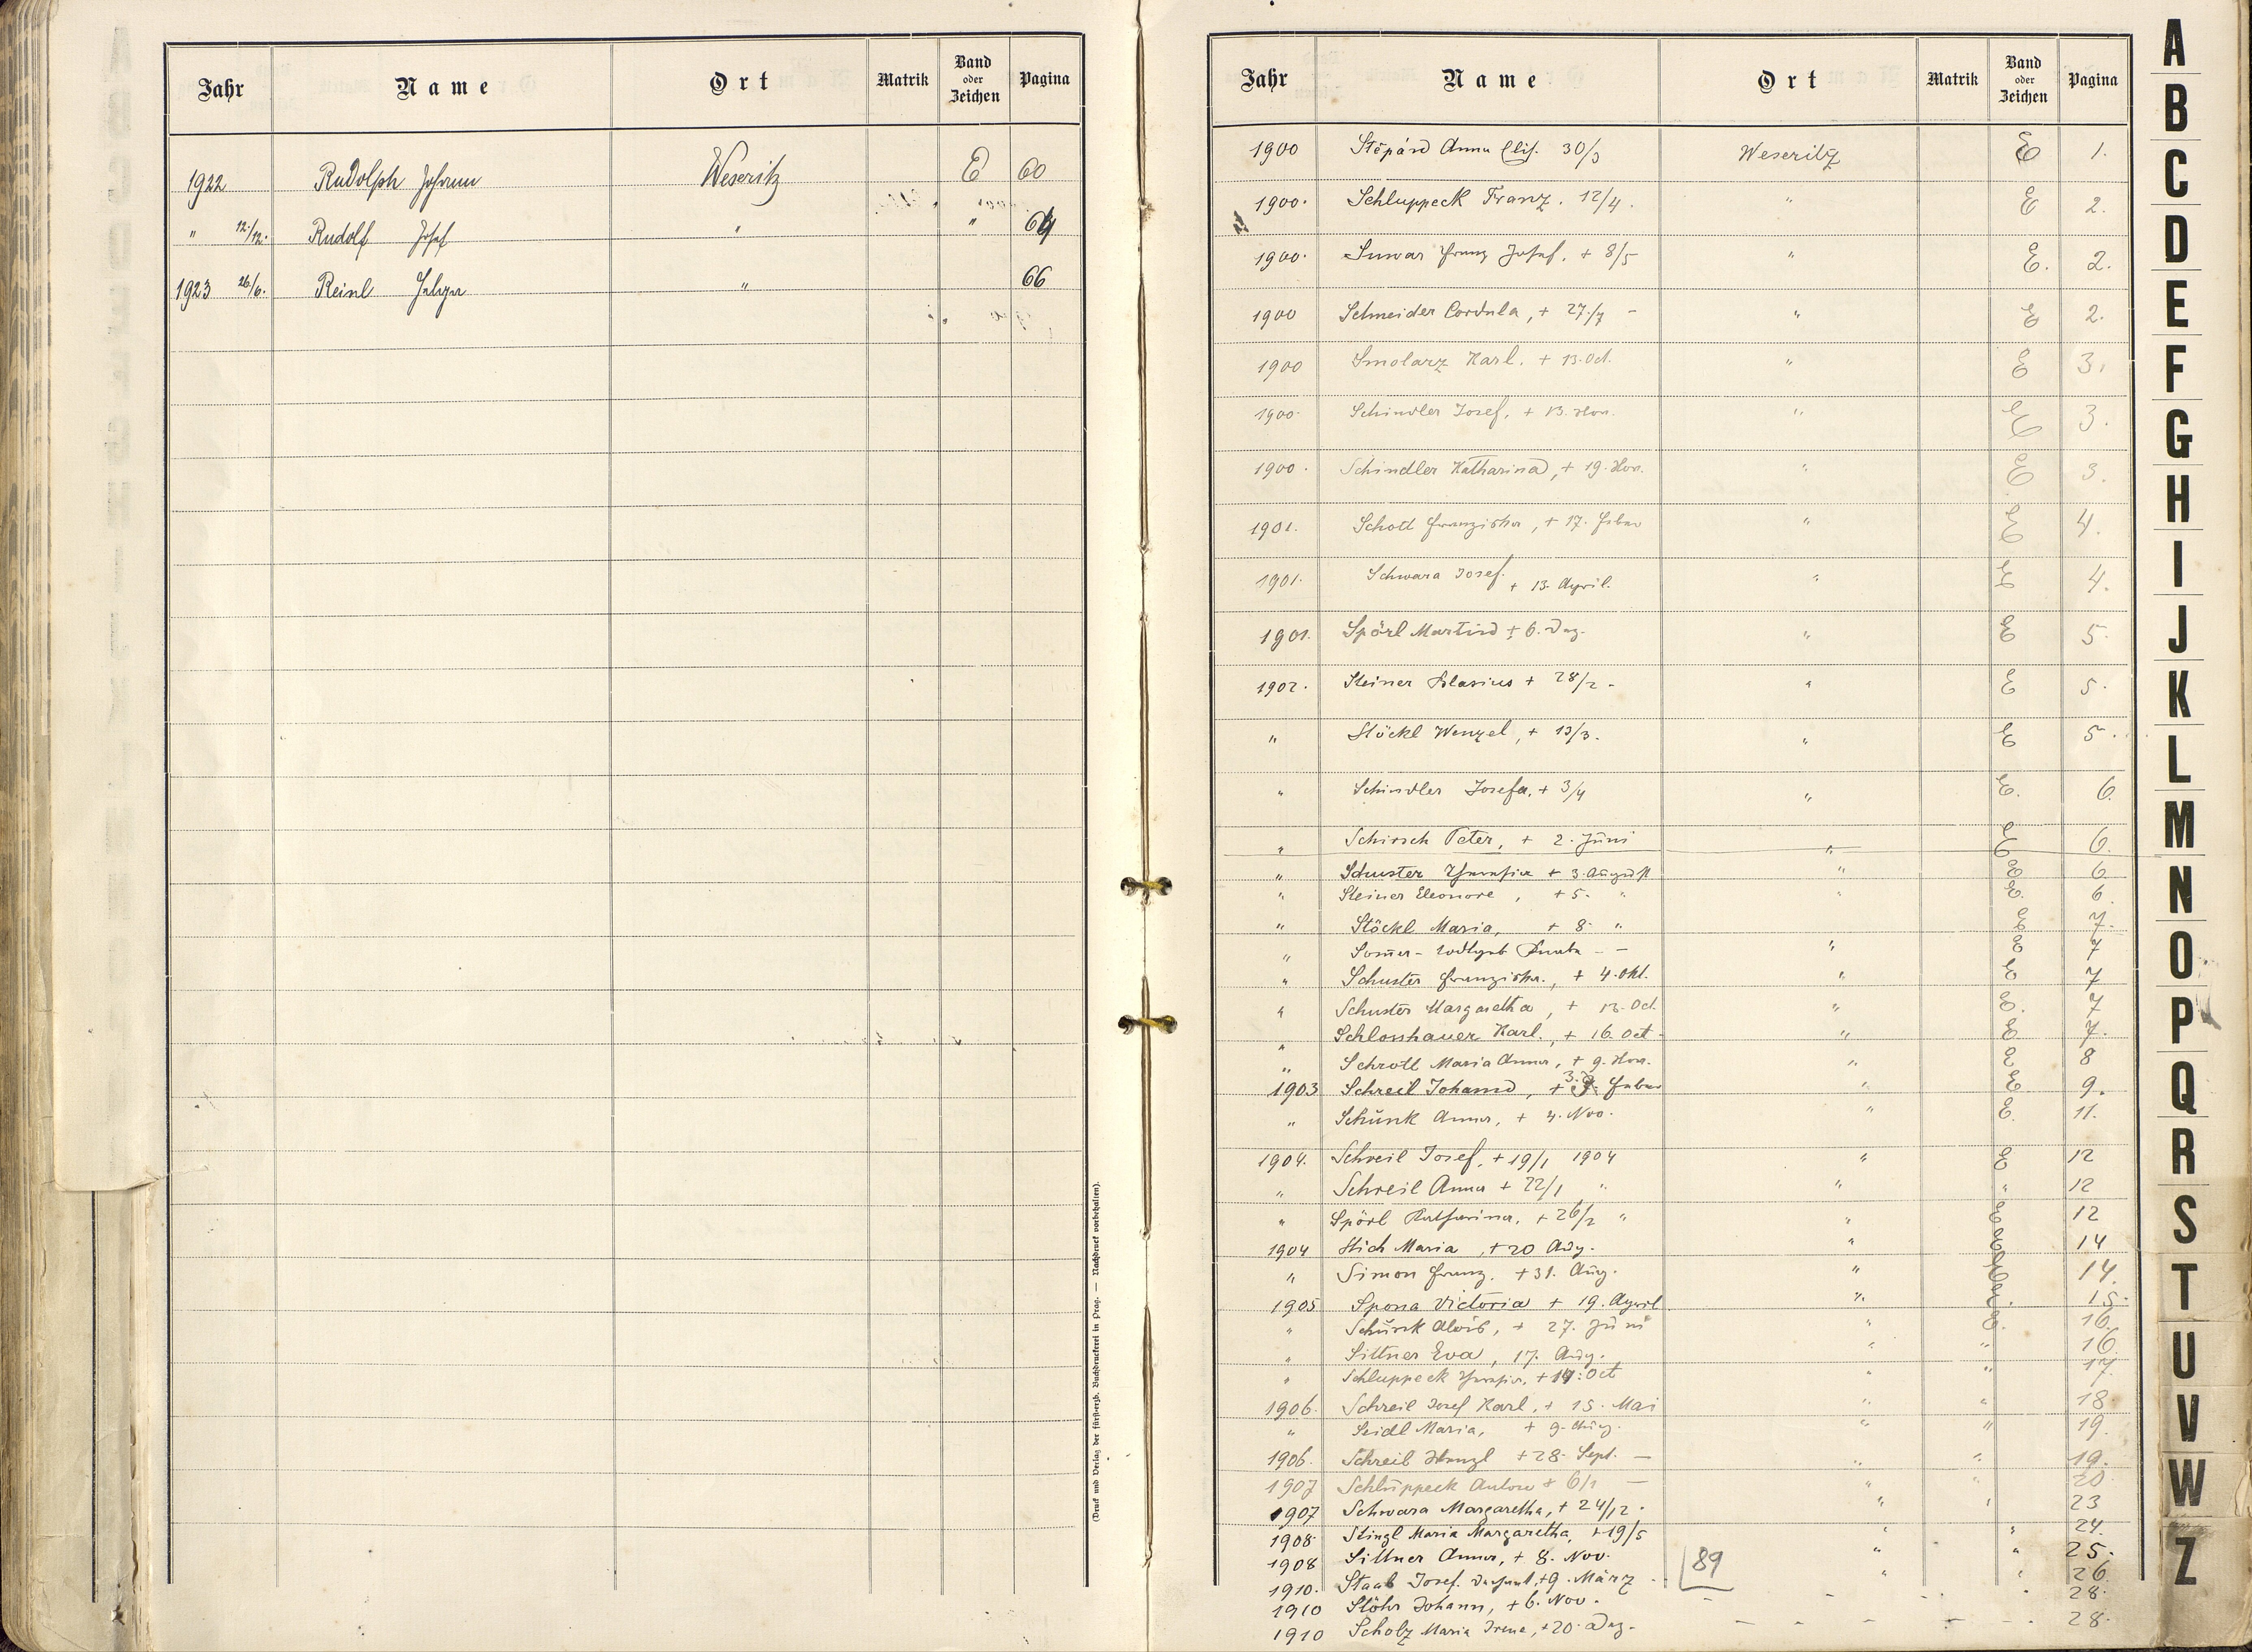 Jahr Name Ort Matrik Band oder Zeichen Pagina
1922 Rudolph Johann Weseritz E 60
" 12/12. Rudolf Josef " " 64
1923 26/6. Reinl " 66
(Druck und Verlag der fürsterzb. Buchdruckerei in Prag. — Nachdruck vorbehalten).
Jahr Name Ort Matrik Band oder Zeichen Pagina
1900 Anna Elis. 30/3 Weseritz E 1.
1900. Schluppeck Franz. 12/4. " E 2.
1900. Franz Josef. + 8/5 " E. 2.
1900 Schneider Cordula, + 27./7 - " E 2.
1900 Smolarz Karl. + 13. Oct. " E 3.
1900. Schindler Josef, + 13. Nov. " E 3.
1900. Schindler Katharina, + 19. Nov. " E 3.
1901. Schott Franziska, + 17. Feber " E 4.
1901. Schwara Josef. + 13. April. " E 4.
1901. Spörl Martin + 6. Dez. " E 5.
1902. Steiner Blasius + 28/2 - " E 5.
" Stöckl Wenzel, + 13/3. " E 5.
" Schindler Josefa, + 3/4 " E. 6.
" Schirsch Peter, + 2. Juni " E 6.
" Schuster + 3. August " E 6.
" Steiner Eleonore, + 5. " " E. 6.
" Stöckl Maria, + 8. " E 7.
" - - - " E 7
" Schuster Franziska, + 4. Okt. " E 7
" Schuster Margaretha, + 13. Oct. " E. 7
" Schlosshauer Karl., + 16. Oct - " E. 7.
" Schrott Maria Anna, + 9. Nov. " E 8
1903 Schreil Johann, + Feber " E. 9.
" Schunk Anna, + 4. Nov. " E. 11.
1904. Schreil Josef, + 19/1 1904 " E 12
" Schreil Anna + 22/1 " " " 12
" Spörl Katharina, + 26/2 " " E 12
1904 Stich Maria, + 20 Aug. " E 14
" Simon Franz. + 31. Aug. " E 14.
1905 Spona Victoria + 19. April " E. 15.
" Schunk Alois, + 27. Juni " E. 16.
" Sittner Eva, 17. Aug. " " 16.
" Schluppeck + 14. Oct " " 17.
1906. Schreil Josef Karl, + 15. Mai " " 18.
" Seidl Maria, + 9. Aug. " " 19.
1906. Schreib + 28. Sept. - " " 19.
1907 Schluppeck Anton + 6/1 - " " 20.
1907 Schwara Margaretha, + 24/12. " " 23
1908 Stingl Maria Margaretha, + 19/5 " " 24.
1908 Sittner Anna, + 8. Nov. " " 25.
1910. Staab Josef. + 9. März - " " 26.
1910 Stöhr Johann, + 6. Nov. - - - - 28.
1910 Scholz Maria Irene, + 20. Dez. - - - - 28.
89
A
B
C
D
E
F
G
H
I
J
K
L
M
N
O
P
Q
R
S
T
U
V
W
Z